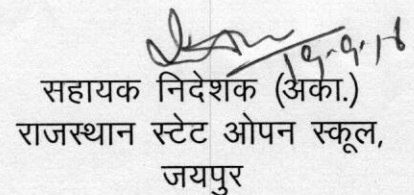 सहायक निदेशक (अका.)
राजस्थान स्टेट ओपन स्कूल,
जयपुर